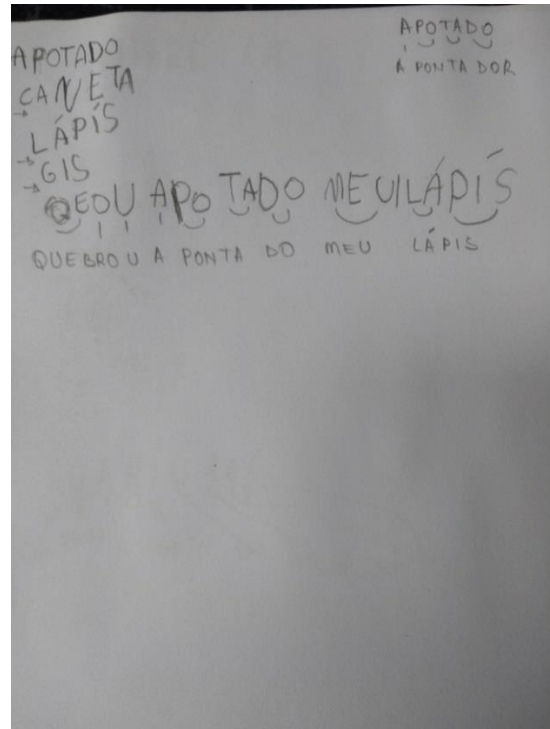 APOTADO
CANETA
LÁPÍS
GIS
APOTADO
A PONTA DOR
QEOU APO TADO MEUILÁPÍS
QUEBROU A PONTA DO MEU LÁPIS